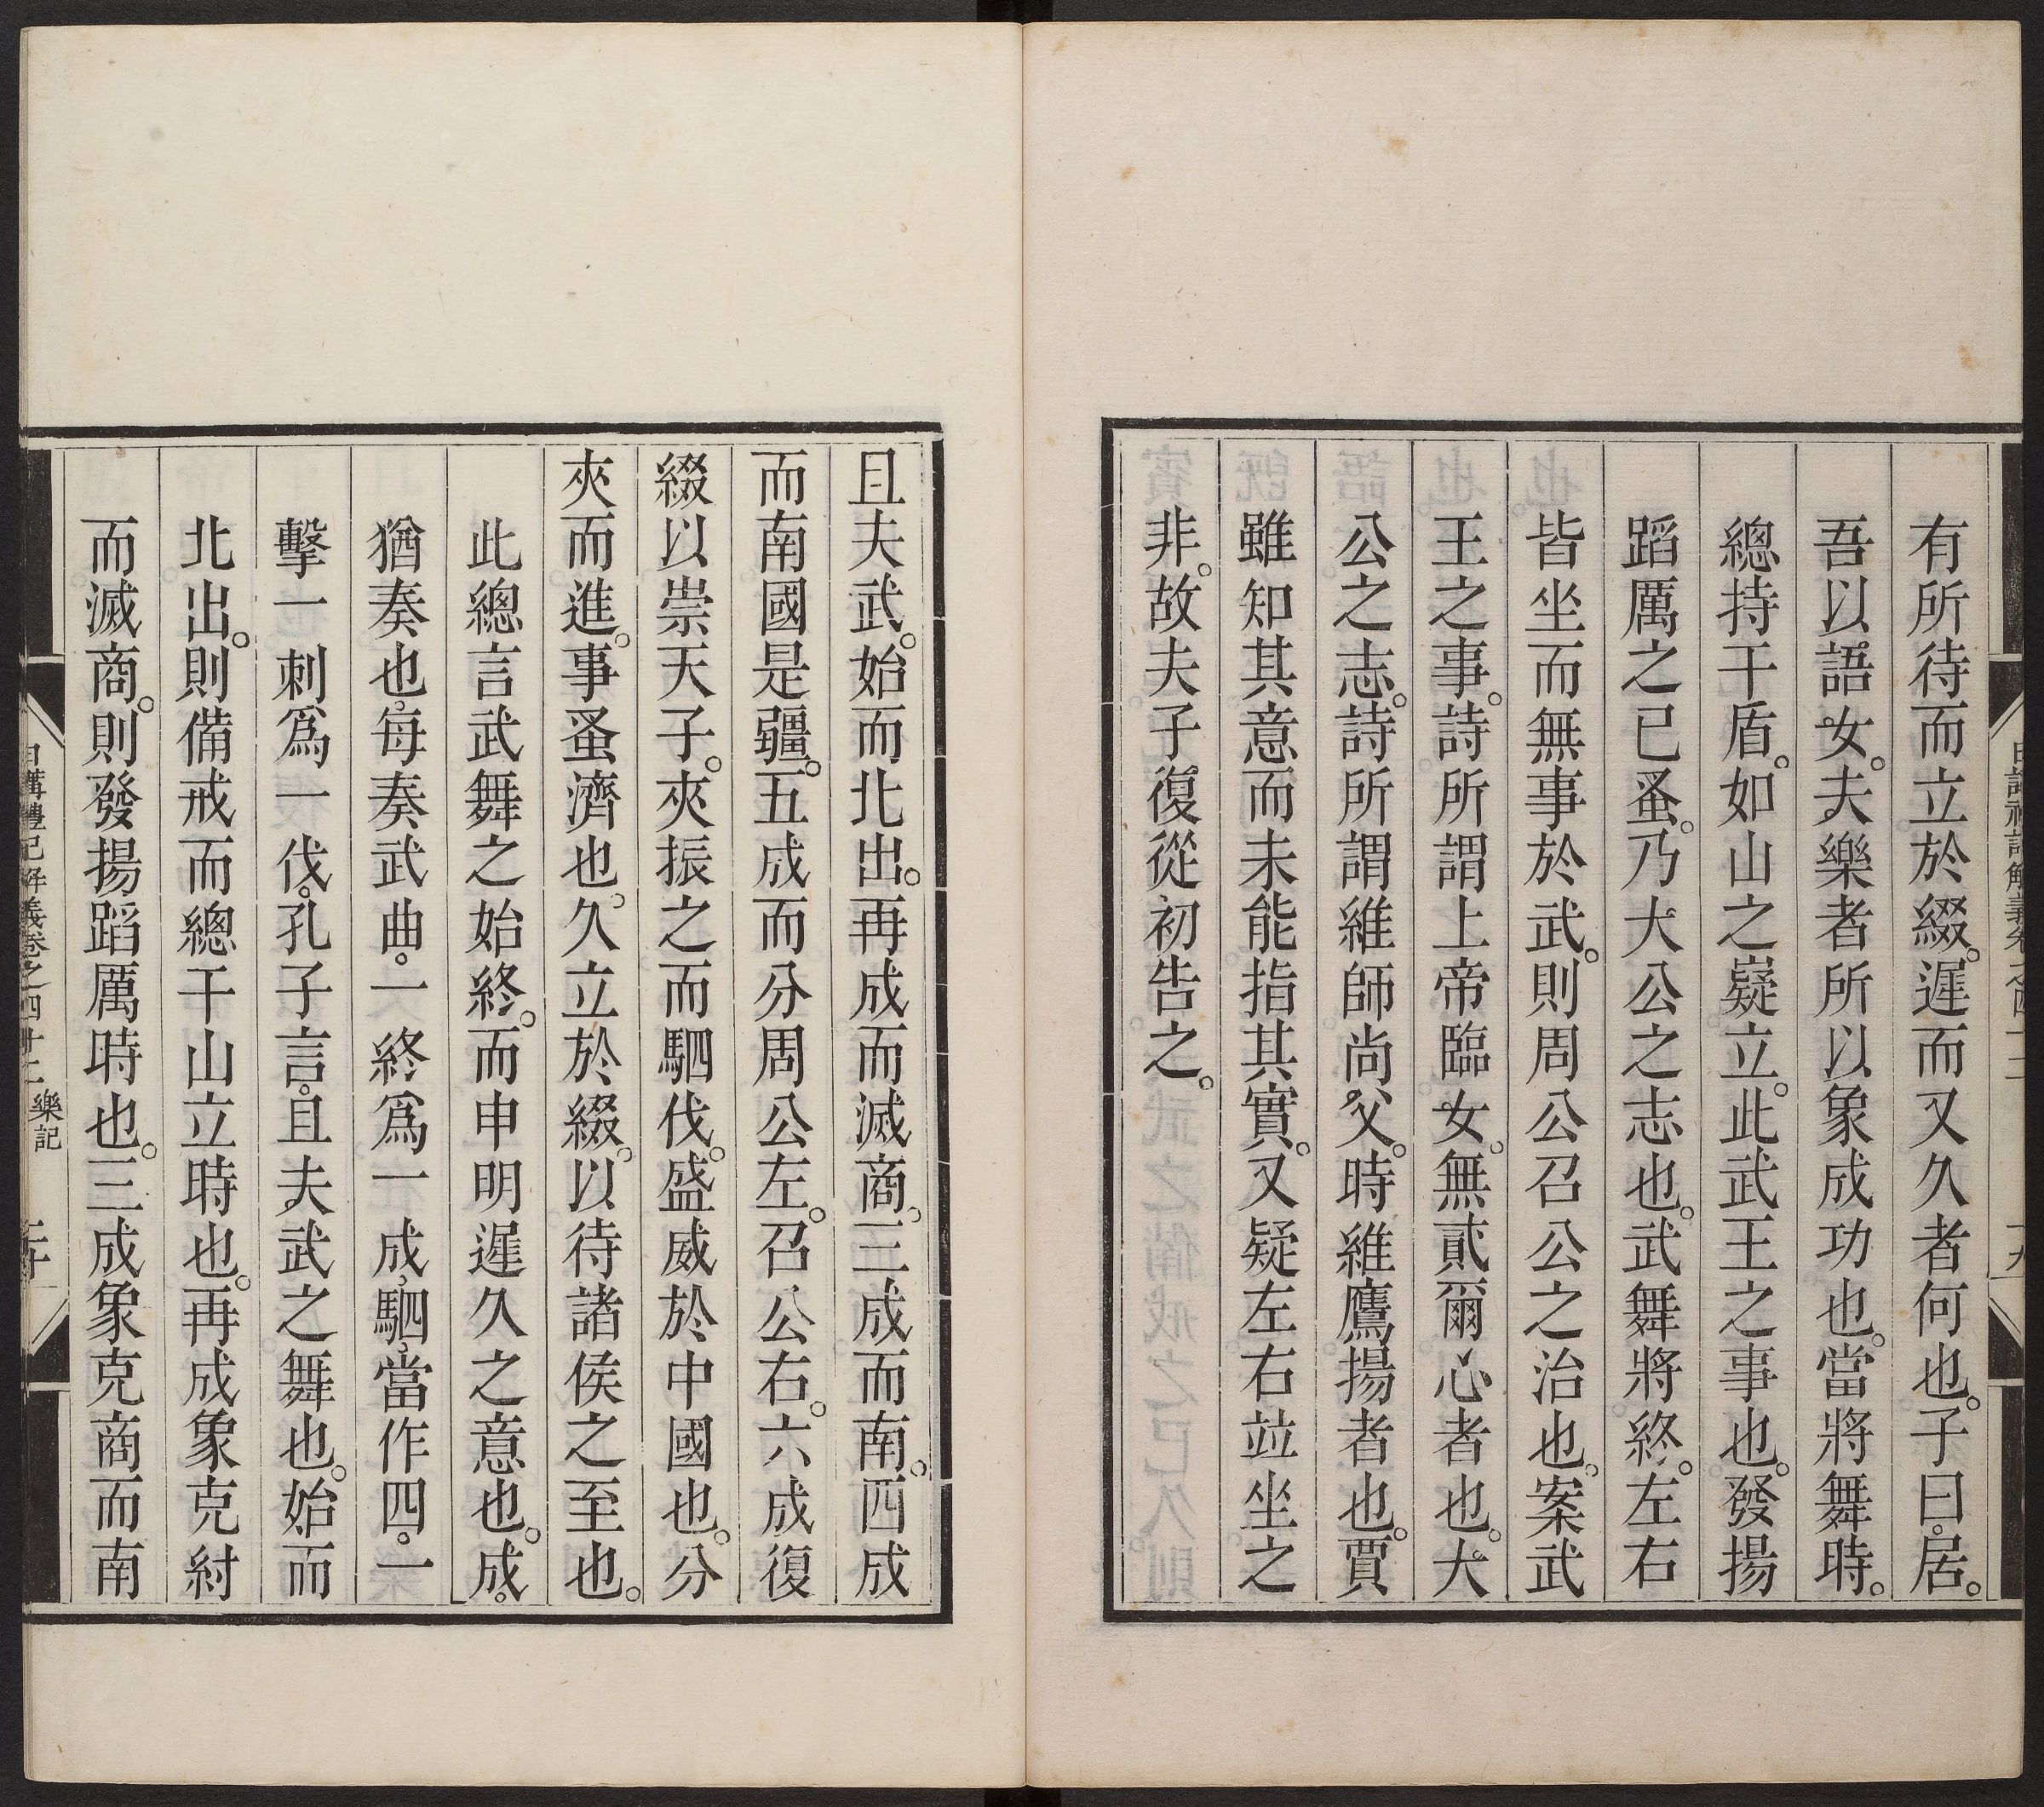 有所待而立於綴。遲而又久者何也。子曰。居。
吾以語女。夫樂者所以象成功也。當將舞時。
總持干盾。如山之嶷立。此武王之事也。發揚
蹈厲之已蚤。乃大公之志也。武舞將終。左右
皆坐而無事於武。則周公召公之治也。案武
王之事。詩所謂上帝臨女。無貳爾心者也。大
公之志。詩所謂維師尚父。時維鷹揚者也。賈
雖知其意而未能指其實。又疑左右竝坐之
非。故夫子復從初告之。
且夫武。始而北出。再成而滅商。三成而南。四成
而南國是疆。五成而分周公左。召公右。六成復
綴以崇天子。夾振之而駟伐。盛威於中國也。分
夾而進。事蚤濟也。久立於綴。以待諸侯之至也。
此總言武舞之始終。而申明遲久之意也。成。
猶奏也。每奏武曲。一終爲一成。駟。當作四。一
擊一刺爲一伐。孔子言。且夫武之舞也。始而
北出。則備戒而總干山立時也。再成象克紂
而滅商。則發揚蹈厲時也。三成象克商而南
日講禮記解義卷之四十二 樂記 二十